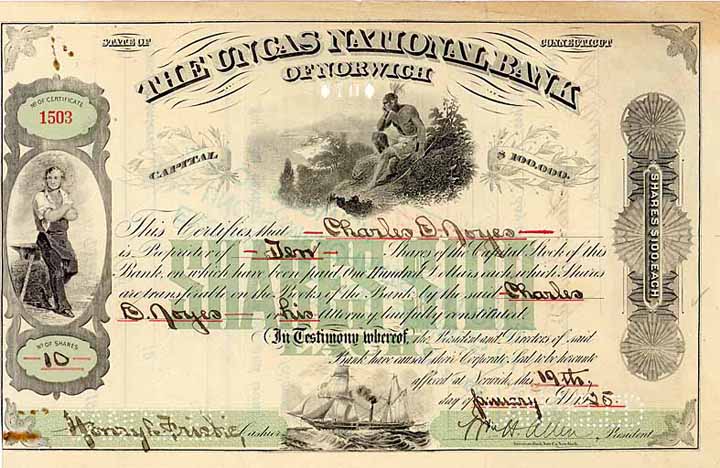 STATE OF CONNECTICUT
THE UNCAS NATIONAL BANK
OF NORWICH
No OF CERTIFICATE
1503
CAPITAL $100,000.
This Certifies, that Charles D. Noyes
is Proprietor of Ten Shares of the Capital Stock of this
Bank, on which have been paid One Hundred Dollars each, which Shares
are transferable on the Books of the Bank by the said Charles
D. Noyes or his Attorney lawfully constituted.
In Testimony whereof, the President and Directors of said
Bank have caused their Corporate Seal to be hereunto
affixed at Norwich, this 19th,
day of January A.D. 1925.
SHARES $100 EACH
No OF SHARES
10
Cashier
Wm H. Allen President